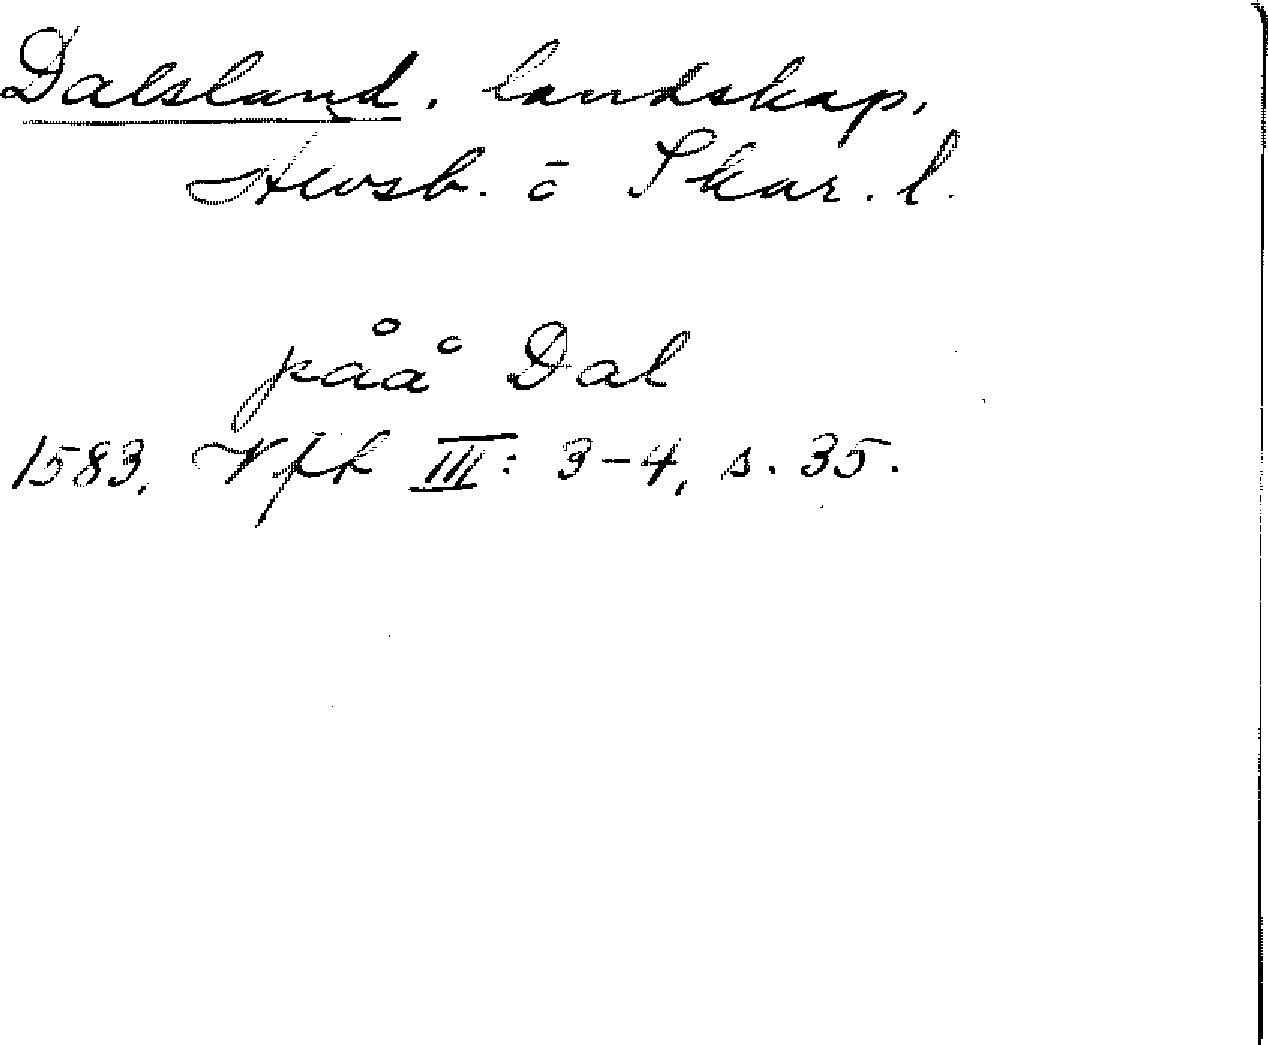 Dalsland. landskap.
Älvsb. o Skar. l.
påå Dal
1583. Vfh III: 3-4, s. 35.